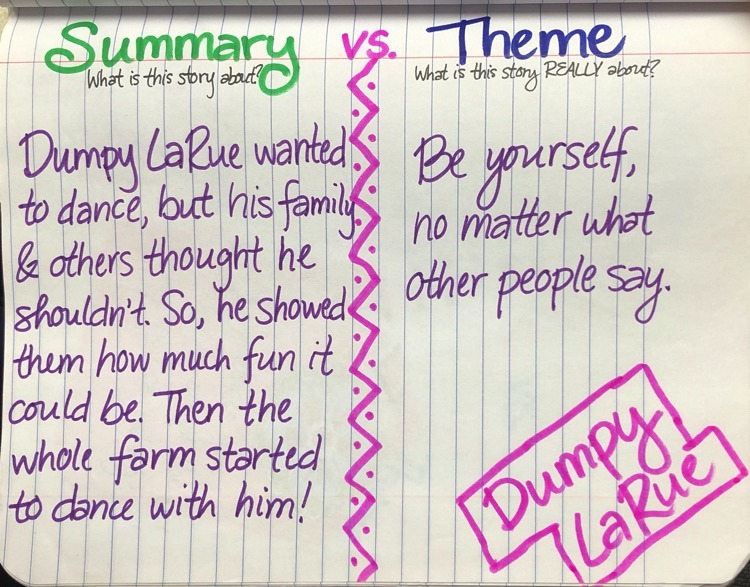 Summary vs. Theme
What is this story about?
What is this story REALLY about?
Dumpy LaRue wanted
to dance, but his family
& others thought he
shouldn't. So, he showed
them how much fun it
could be. Then the
whole farm started
to dance with him!
Be yourself,
no matter what
other people say.
Dumpy
LaRue